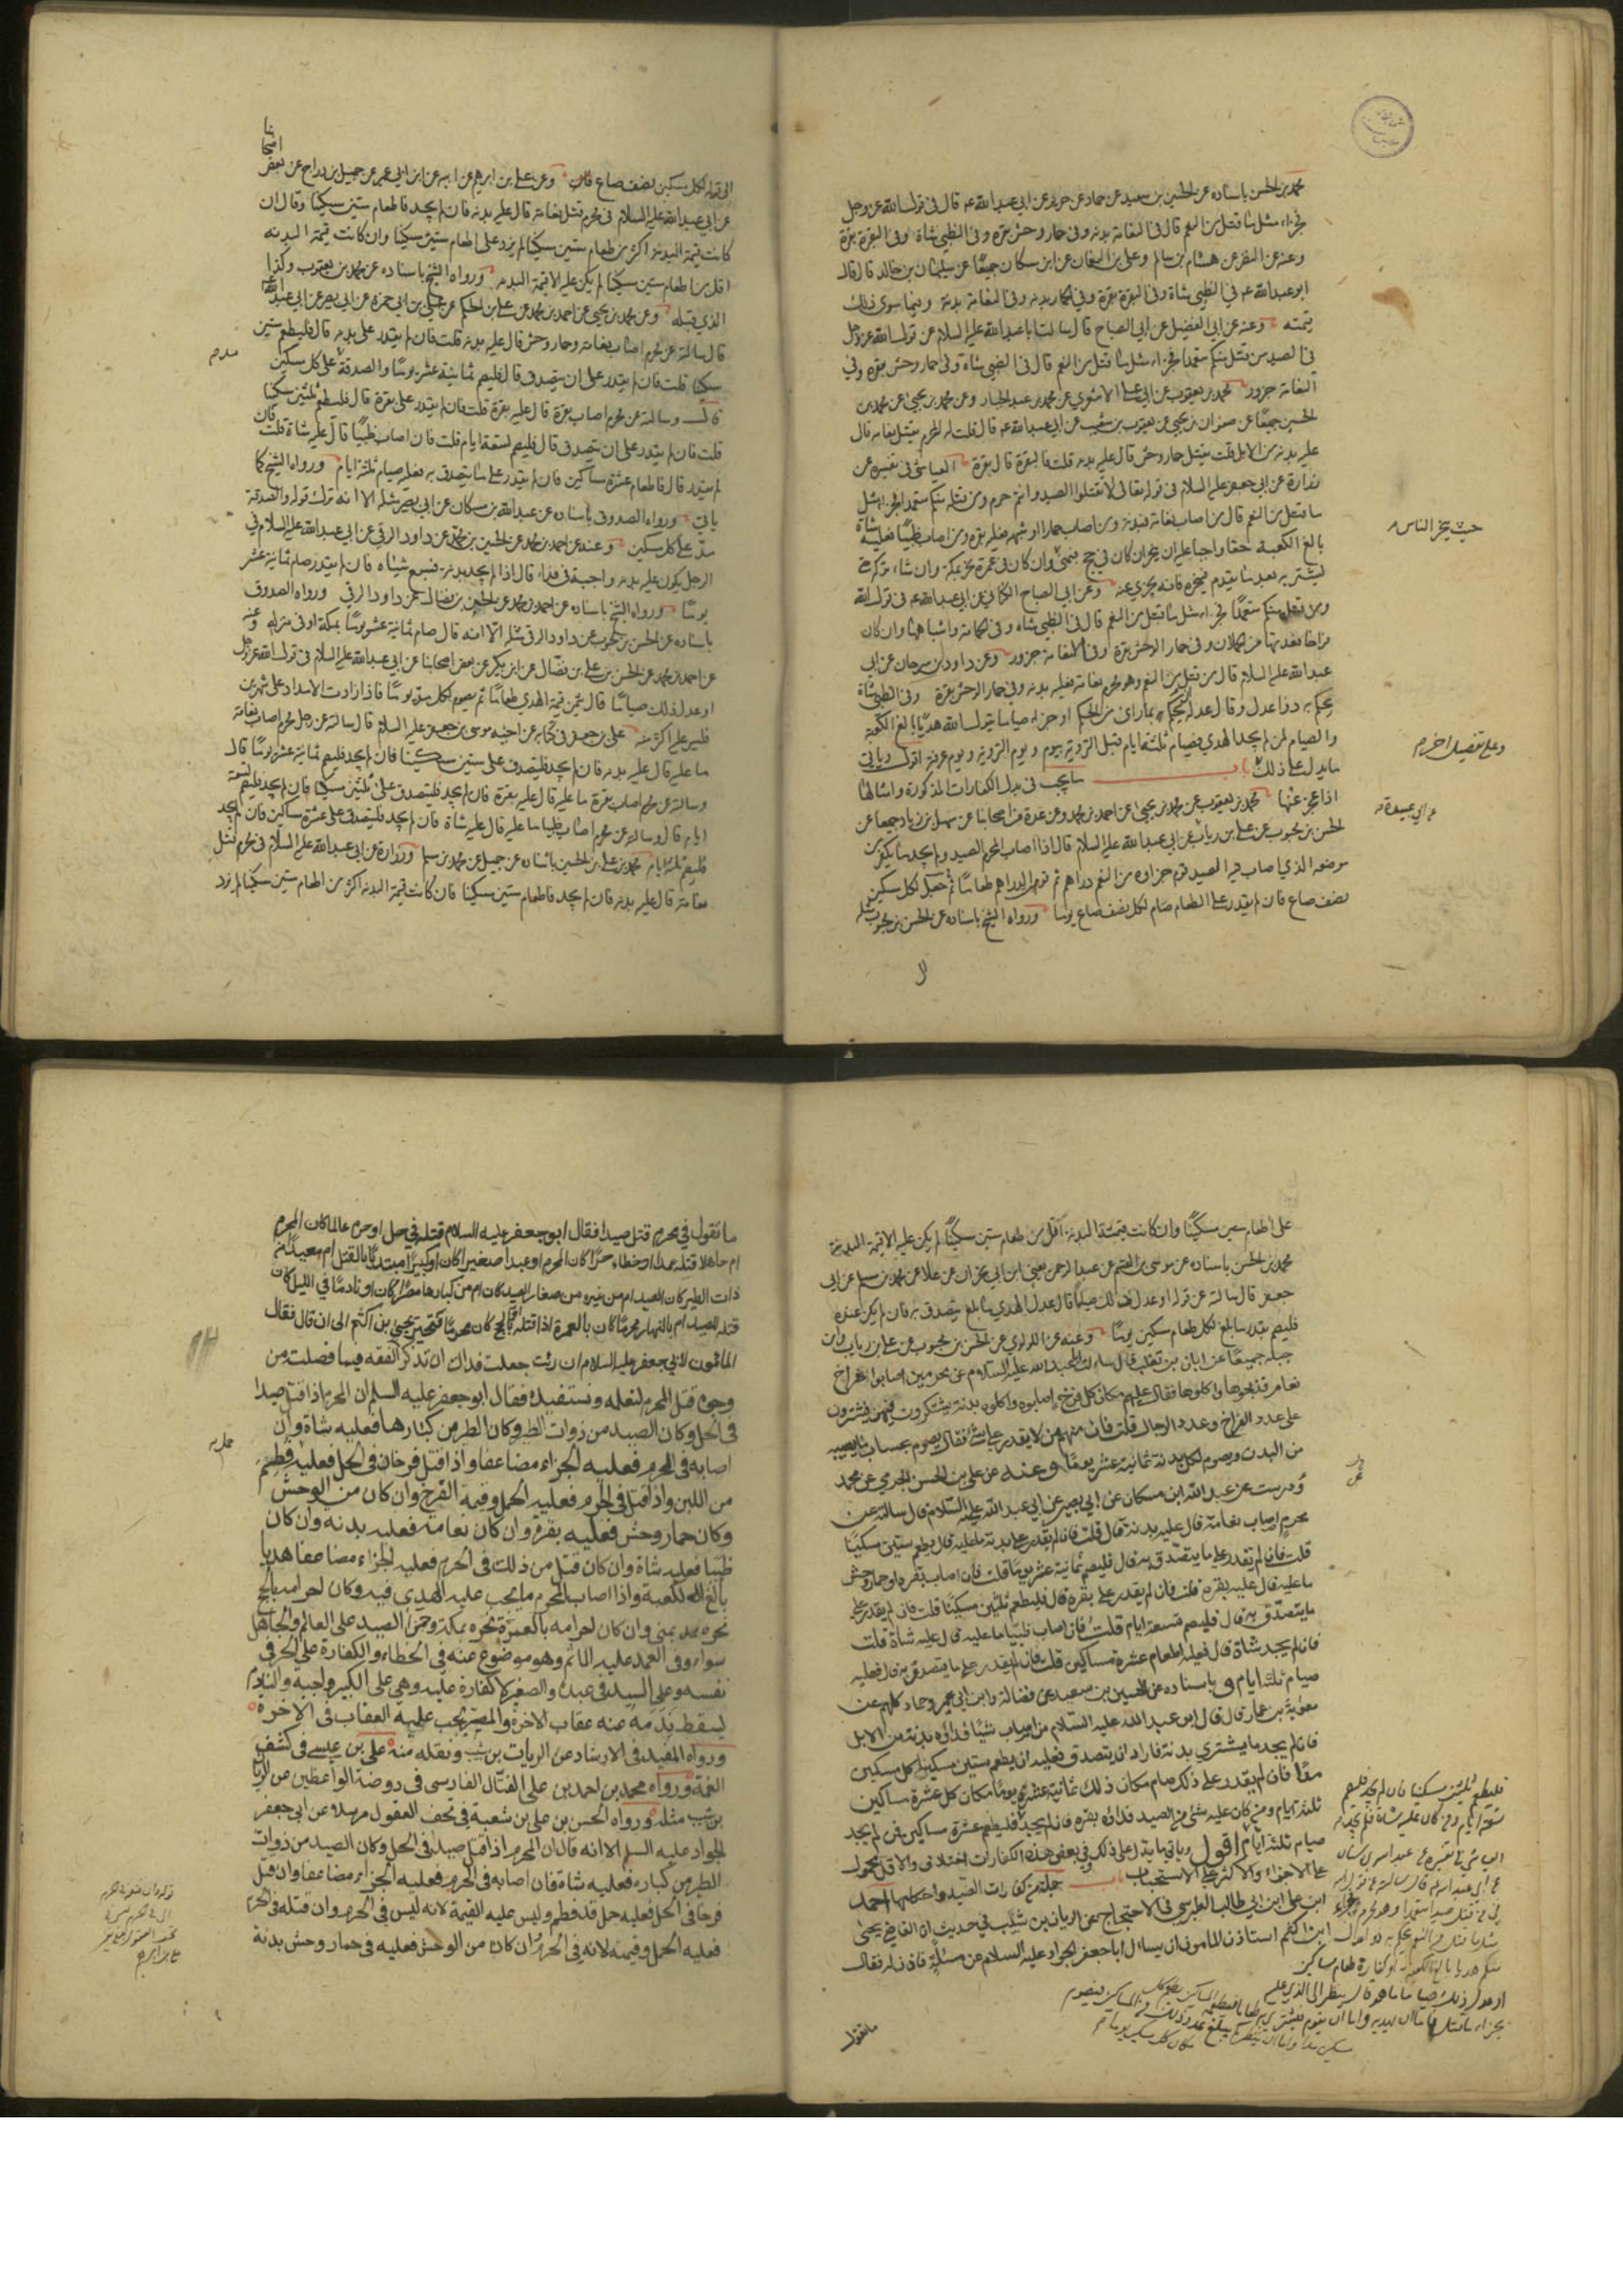 محمد بن الحسن باسناده عن الحسين بن سعيد عن حماد عن حريز عن ابي عبد الله عه قال في قول الله عز وجل
فجزاء مثل ما قتل من النعم قال في النعامة بدنه وفي حمار وحش بقرة وفي الظبي شاة وفي البقرة بقرة
وعنه عن النضر عن هشام بن سالم وعلي بن النعمان عن ابن مسكان جميعًا عن سليمان بن خالد قال قال
ابو عبد الله عه في الظبي شاة وفي البقرة بقرة وفي الحمار بدنه وفي النعامة بدنه وفيما سوى ذلك
قيمته وعنه عن ابن الفضيل عن ابي الصباح قال سالت ابا عبد الله عليه السلام عن قول الله عز وجل
في الصيد من قتله منكم متعمدا فجزاء مثل ما قتل من النعم قال في الظبي شاة وفي حمار وحش بقرة وفي
النعامة جزور محمد بن يعقوب عن ابي علي الاشعري عن محمد بن عبد الجبار وعن محمد بن يحيى عن محمد بن
الحسين جميعًا عن صفوان بن يحيى عن يعقوب بن شعيب عن ابي عبد الله عه قال قلت له المحرم يقتل نعامه قال
عليه بدنه من الابل قلت يقتل حمار وحش قال عليه بدنه قلت فالبقرة قال بقرة العياشي في تفسيره عن
زرارة عن ابي جعفر عليه السلام في قوله تعالى لا تقتلوا الصيد وانتم حرم ومن قتله منكم متعمدا فجزاء مثل
ما قتل من النعم قال من اصاب نعامة فبدنه ومن اصاب حمارا او شبهه فعليه بقرة ومن اصاب ظبيًا فعليه شاة
بالغ الكعبة حقا واجبا عليه ان ينحر ان كان في حج بمنى وان كان في عمرة نحر بمكة وان شاء تركه حتى
حيث ينحر الناس
يشتريه بعد ما يقدم فينحره فانه يجزي عنه وعن ابي الصباح الكناني عن ابي عبد الله عه في قول الله
ومن قتله منكم متعمدًا فجزاء مثل ما قتل من النعم قال في الظبي شاه وفي الحمامة واشباهها وان كان
فراخا فعدتها من الحملان وفي حمار الوحش بقرة وفي النعامة جزور وعن داود بن سرحان عن ابي
عبد الله عليه السلام قال من قتل من النعم وهو محرم نعامة فعليه بدنه وفي حمار الوحش بقرة وفي الظبي شاة
يحكم به ذوا عدل وقال عدله ان يحكم بما راى من الحكم او جزاء صيام يقول الله هديًا بالغ الكعبة
والصيام لمن لم يجد الهدي فصيام ثلثة ايام قبل التروية بيوم ويوم التروية ويوم عرفة اقول وياتي
ما يدل على ذلك باب ما يجب في بدل الكفارات المذكورة وامثالها
اذا عجز عنها محمد بن يعقوب عن محمد بن يحيى عن احمد بن محمد وعن عدة من اصحابنا عن سهل بن زياد جميعا عن
الحسن بن محبوب عن علي بن رئاب عن ابي عبد الله عليه السلام قال اذا اصاب المحرم الصيد ولم يجد ما يكفر من
عن ابي عبيدة
موضعه الذي اصاب فيه الصيد قوم جزاؤه من النعم دراهم ثم قومت الدراهم طعامًا ثم جعل لكل مسكين
نصف صاع فان لم يقدر على الطعام صام لكل نصف صاع يوما ورواه الشيخ باسناده عن الحسن بن محبوب مثله
الى قوله لكل مسكين نصف صاع وعن علي بن ابرهيم عن ابيه عن ابن ابي عمير عن جميل بن دراج عن بعض اصحابنا
عن ابي عبد الله عليه السلام في محرم قتل نعامة قال عليه بدنه فان لم يجد فاطعام ستين مسكينا وقال ان
كانت قيمة البدنه اكثر من طعام ستين مسكينا لم يزد على اطعام ستين مسكينا وان كانت قيمة البدنه
اقل من اطعام ستين مسكينا لم يكن عليه الا قيمة البدنه ورواه الشيخ باسناده عن محمد بن يعقوب وكذا
الذي قبله وعن محمد بن يحيى عن احمد بن محمد عن علي بن الحكم عن علي بن ابي حمزه عن ابي بصير عن ابي عبد الله
قال سالته عن محرم اصاب نعامة وحمار وحش قال عليه بدنه قلت فان لم يقدر على بدنه قال فليطعم ستين
مسكينا قلت فان لم يقدر على ان يتصدق قال فليصم ثمانية عشر يومًا والصدقة على كل مسكين
قال وسالته عن محرم اصاب بقرة قال عليه بقرة قلت فان لم يقدر على بقرة قال فليطعم ثلثين مسكينا
قلت فان لم يقدر على ان يتصدق قال فليصم تسعة ايام قلت فان اصاب ظبيًا قال عليه شاة قلت فان
لم يقدر قال فاطعام عشرة مساكين فان لم يقدر على ما يتصدق به فعليه صيام ثلثة ايام ورواه الشيخ كما
ياتي ورواه الصدوق باسناده عن عبد الله بن مسكان عن ابي بصير مثله الا انه ترك قوله والصدقة
مد على كل مسكين وعنه عن احمد بن محمد عن الحسين بن محمد عن داود الرقي عن ابي عبد الله عليه السلام في
الرجل يكون عليه بدنه واجبة في فداء قال اذا لم يجد بدنه فسبع شياه فان لم يقدر صام ثمانية عشر
يومًا ورواه الشيخ باسناده عن احمد بن محمد عن الحسن بن فضال عن داود الرقي ورواه الصدوق
باسناده عن الحسن بن محبوب عن داود الرقي مثله الا انه قال صام ثمانية عشر يومًا بمكة او في منزله وعنه
عن احمد بن محمد عن الحسن بن علي بن فضال عن ابن بكير عن بعض اصحابنا عن ابي عبد الله عليه السلام في قول الله عز وجل
او عدل ذلك صيامًا قال يثمن قيمة الهدي طعامًا ثم يصوم لكل مد يومًا فاذا زادت الامداد على شهرين
فليس عليه اكثر منه علي بن جعفر في كتابه عن اخيه موسى بن جعفر عليه السلام قال سالته عن رجل محرم اصاب نعامة
ما عليه قال عليه بدنه فان لم يجد فليتصدق على ستين مسكينا فان لم يجد فليصم ثمانية عشر يومًا قال
وسالته عن محرم اصاب بقرة ما عليه قال عليه بقرة فان لم يجد فليتصدق على ثلثين مسكينا فان لم يجد فليصم تسعة
ايام قال وسالته عن محرم اصاب ظبيا ما عليه قال عليه شاة فان لم يجد فليتصدق على عشرة مساكين فان لم يجد
فليصم ثلثة ايام محمد بن علي بن الحسين باسناده عن جميل عن محمد بن مسلم وزرارة عن ابي عبد الله عليه السلام في محرم قتل
نعامة قال عليه بدنه فان لم يجد فاطعام ستين مسكينا فان كانت قيمة البدنه اكثر من اطعام ستين مسكينا لم يزد
على اطعام ستين مسكينًا وان كانت قيمة البدنة اقل من طعام ستين مسكينًا لم يكن عليه الا قيمة البدنة
محمد بن الحسن باسناده عن موسى بن القسم عن عبد الرحمن يعني ابن ابي نجران عن علا عن محمد بن مسلم عن ابي
جعفر قال سالته عن قوله او عدل ذلك صيامًا قال عدل الهدي ما بلغ يتصدق به فان لم يكن عنده
فليصم بقدر ما بلغ لكل طعام مسكين يومًا وعنه عن اللؤلؤي عن الحسن بن محبوب عن علي بن رئاب وابن
جبله جميعًا عن ابان بن تغلب قال سالت ابا عبد الله عليه السلام عن محرمين اصابوا افراخ
نعام فذبحوها واكلوها فقال عليهم مكان كل فرخ اصابوه واكلوه بدنة يشتركون فيهن فيشترون
على عدد الفراخ وعدد الرجال قلت فان منهم من لا يقدر على شئ فقال يصوم بحساب ما يصيبه
من البدن ويصوم لكل بدنة ثمانية عشر يومًا وعنه عن علي بن الحسن الجرمي عن محمد
ودرست عن عبد الله ابن مسكان عن ابي بصير عن ابي عبد الله عليه السلام قال سالته عن
محرم اصاب نعامة قال عليه بدنة قال قلت فان لم يقدر على بدنة ما عليه قال يطعم ستين مسكينًا
قلت فان لم يقدر على ما يتصدق به قال فليصم ثمانية عشر يومًا قلت فان اصاب بقره او حمار وحش
ما عليه قال عليه بقرة قلت فان لم يقدر على بقرة قال فليطعم ثلثين مسكينًا قلت فان لم يقدر على
ما يتصدق به قال فليصم تسعة ايام قلت فان اصاب ظبيًا ما عليه قال عليه شاة قلت
فان لم يجد شاة قال فعليه اطعام عشرة مساكين قلت فان لم يقدر على ما يتصدق به قال فعليه
صيام ثلثة ايام وباسناده عن الحسين بن سعيد عن فضالة وابن ابي عمير وحماد كلهم عن
معوية بن عمار قال قال ابو عبد الله عليه السلام من اصاب شيئا فداؤه بدنة من الابل
فان لم يجد ما يشتري بدنة فاراد ان يتصدق فعليه ان يطعم ستين مسكينا كل مسكين
مدًا فان لم يقدر على ذلك صام مكان ذلك ثمانية عشر يومًا مكان كل عشرة مساكين
ثلثة ايام ومن كان عليه شئ من الصيد فداؤه بقره فان لم يجد فليطعم عشرة مساكين فمن لم يجد
صيام ثلثة ايام اقول وياتي ما يدل على ذلك وفي بعض هذه الكفارات اختلاف والاقل محمول
على الاجزاء والاكثر على الاستحباب باب جملة من كفارات الصيد واحكامها احمد
ابن علي ابن ابي طالب الطبرسي في الاحتجاج عن الريان بن شبيب في حديث ان القاضي يحيى
ابن اكثم استاذن المامون ان يسال ابا جعفر الجواد عليه السلام عن مسئلة فاذن له فقال
ما تقول
ما تقول في محرم قتل صيدا فقال ابو جعفر عليه السلام قتله في حل او حرم عالما كان المحرم
ام جاهلا قتله عمدا او خطاء حرًا كان المحرم او عبدا صغيرا كان او كبيرا مبتدئًا بالقتل ام معيدًا من
ذوات الطير كان الصيد ام من غيره من صغار الصيد كان ام من كبارها مصرًا كان او نادمًا في الليل كان
قتله للصيد ام بالنهار محرمًا كان بالعمرة اذا قتله او بالحج كان محرمًا فتحير يحيى بن اكثم الى ان قال فقال
المامون لابي جعفر عليه السلام ان رايت جعلت فداك ان تذكر الفقه فيما فصلت من
وجوه قتل المحرم لنعلمه ونستفيده فقال ابو جعفر عليه السلم ان المحرم اذا قتل صيدا
في الحل وكان الصيد من ذوات الطير وكان الطير من كبارها فعليه شاة وان
اصابه في الحرم فعليه الجزاء مضاعفا واذا قتل فرخا في الحل فعليه حمل قد فطم
من اللبن واذا قتله في الحرم فعليه الحمل وقيمة الفرخ وان كان من الوحش
وكان حمار وحش فعليه بقرة وان كان نعامة فعليه بدنه وان كان
ظبيا فعليه شاة وان كان قتل من ذلك في الحرم فعليه الجزاء مضاعفا هديا
بالغ الكعبة واذا اصاب المحرم ما يجب عليه الهدي فيه وكان احرامه بالحج
نحره بمنى وان كان احرامه بالعمرة نحره بمكة وجزاء الصيد على العالم والجاهل
سواء وفي العمد عليه الماثم وهو موضوع عنه في الخطاء والكفارة على الحر في
نفسه وعلى السيد في عبده والصغير لا كفارة عليه وهي على الكبير واجبة والنادم
يسقط بندمه عنه عقاب الاخرة والمصر يجب عليه العقاب في الاخرة
ورواه المفيد في الارشاد عن الريان بن شبيب ونقله منه علي بن عيسى في كشف
الغمة ورواه محمد بن احمد بن علي الفتال الفارسي في روضة الواعظين عن الريان
بن شبيب مثله ورواه الحسن بن علي بن شعبة في تحف العقول مرسلا عن ابي جعفر
الجواد عليه السلم الا انه قال ان المحرم اذا قتل صيدا في الحل وكان الصيد من ذوات
الطير من كباره فعليه شاة فان اصابه في الحرم فعليه الجزاء مضاعفا وان قتل
فرخا في الحل فعليه حمل قد فطم وليس عليه القيمة لانه ليس في الحرم وان قتله في الحرم
فعليه الحمل وقيمته لانه في الحرم وان كان من الوحش فعليه في حمار وحش بدنة